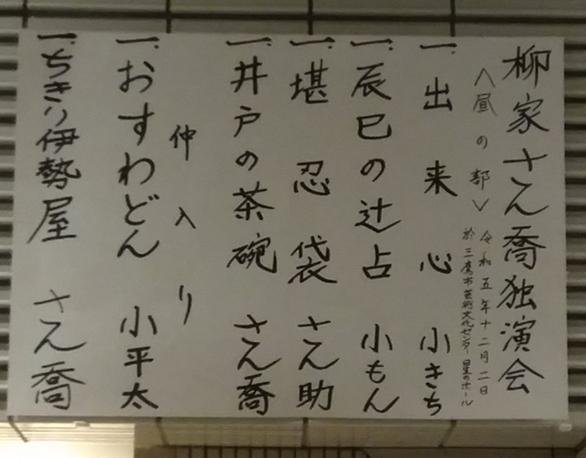 柳家さん喬独演会
＜昼の部＞
令和五年十二月二日
於 三鷹市芸術文化センター 星のホール
一、出来心 小きち
一、辰巳の辻占 小もん
一、堪忍袋 さん助
一、井戸の茶碗 さん喬
仲入り
一、おすわどん 小平太
一、ちきり伊勢屋 さん喬